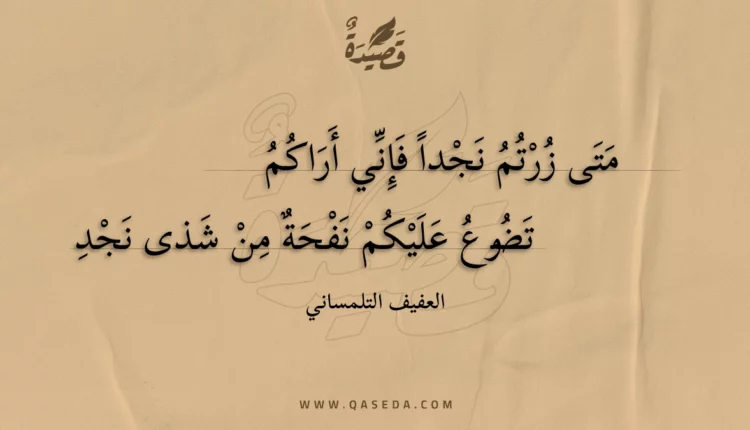 قَصِيْدَةٌ
مَتَى زُرْتُمُ نَجْداً فَإِنِّي أَرَاكُمُ
تَضُوعُ عَلَيْكُمْ نَفْحَةٌ مِنْ شَذى نَجْدِ
العفيف التلمساني
WWW.QASEDA.COM